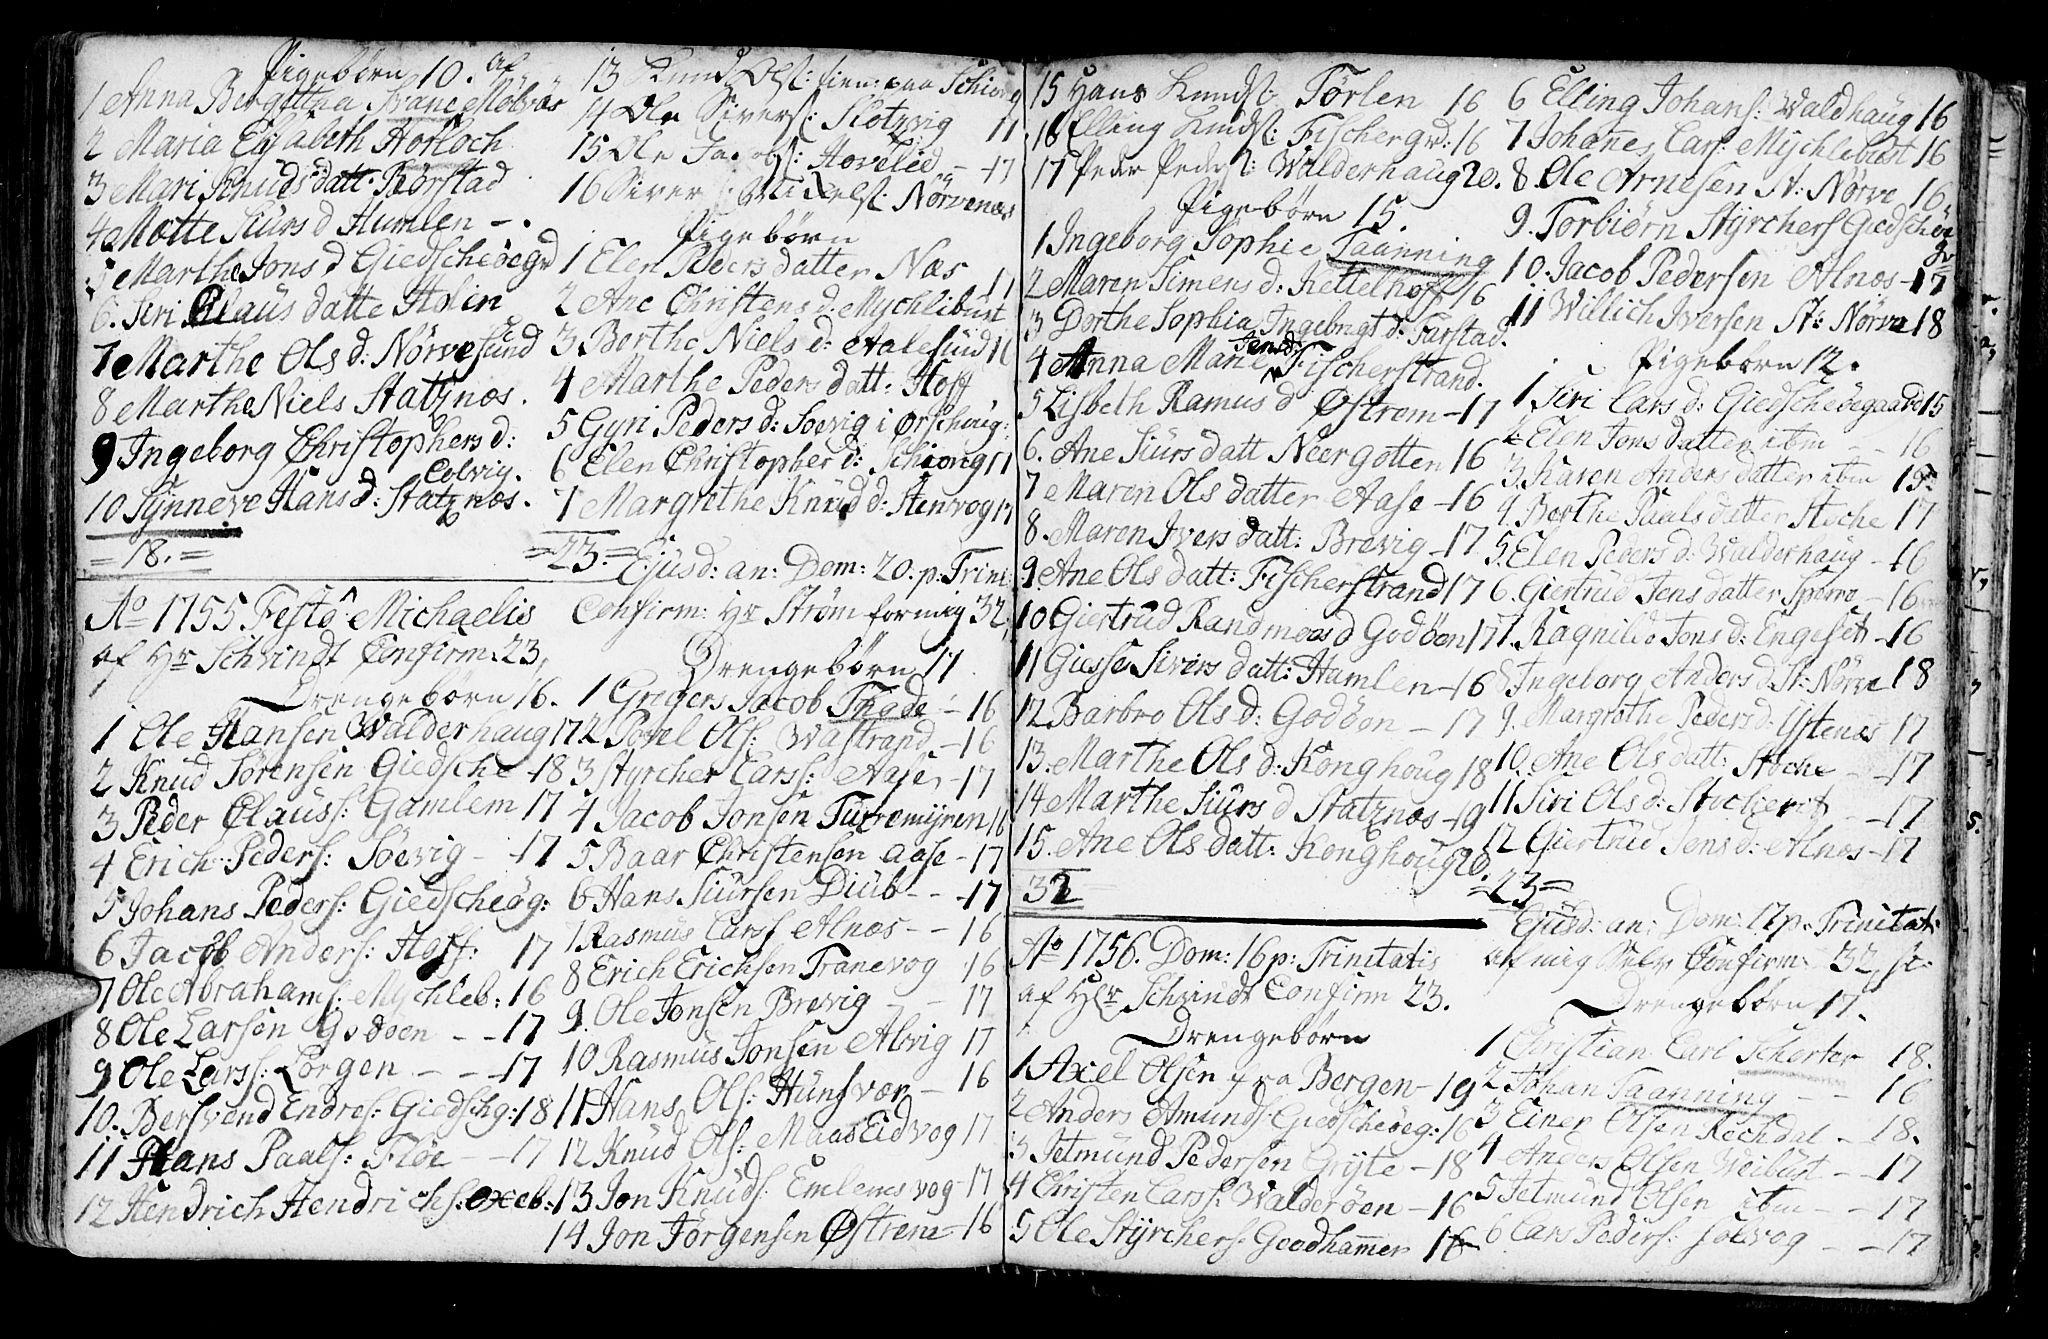 Pigebørn 10. af
1 Anna Bergittha Svane Molvær
2 Maria Elisabeth Horloch
3 Mari Knuds datt: Rørstad
4 Mætte Siurs d Humlen - .
5 Marthe Jons d Giedscheøegrd
6. Siri Claus datte Holen
7 Marthe Ols d: Nørvesund
8 Marthe Niels Statznæs.
9 Ingeborg Christophers d:
Colvig.
10 Synneve Hans d: Statznæs.
= 18. =
Ao 1755 Festo Michaelis
af Hr Schvindt Confirm: 23,
Drengebørn 16.
1 Ole Hansen Walderhaug 17
2 Knud Sørensen Giedsche - 18
3 Peder Clauss: Gamlem 17
4 Erich Peders: Søevig - 17
5 Johans Peders: Giedscheøg:
6 Jacob Anders: Hoff: 17
7 Ole Abrahams: Mychleb: 16
8 Ole Larsen Godøen - - 17
9 Ole Larss: Lorgen - - 17
10. Bersvend Endres: Giedschg: 18
11 Hans Paals: Fløe - - 17
12 Hendrich Hendrichs: oxeb:
13 Knud Ols: tien: paa Schiong
14 Ole Sivers: Slotzvig 17
15 Ole Jacobs: Hovelid - 17
16 Siver Nickels: Nørvenæs
Pigebørn
1 Elen Peders datter Næs 17
2 Ane Christens d: Mychlibust
3 Berthe Niels d: Aalesund 16
4 Marthe Peders datt: Hoff
5 Gyri Peders d: Søevig i Ørschoug:
6 Elen Christopher d: Schiong 17
7 Margrethe Knud d: Stenvog 17
= 23 =
Ejusd: an: Dom: 20. p: Trini:
Confirm: Hr Strøm for mig 32,
Drengebørn 17
1 Grigers Jacob Thade - 16
2 Povel Ols: Wastrand - 16
3 Styrcher Larss: Aase - 17
4 Jacob Jonsen Turremyren 16
5 Baar Christensen Aase - 17
6 Hans Siursen Diub - - 17
7 Rasmus Larss Alnæs - - 16
8 Erich Erichsen Tranevog 16
9. Ole Jonsen Brevig - - 17
10. Rasmus Jonsen Alvig 17
11 Hans Ols: Hunsvær - 16
12 Knud Ols: Maaseidvog 17
13 Jon Knuds: Emlemsvog - 17
14 Jon Jørgensen Østrem - 16
15 Hans Knuds: Tørlen 16
16 Elling Knuds: Fischergrd: 16
17 Peder Peders: Walderhaug 20.
Pigebørn 15.
1 Ingeborg Sophie Taanning
2 Maren Simens d: Kettelhoff 16
3 Dorthe Sophia Ingebrigt d: Farstad.
4 Anna Marie Jensd: Fischerstrand.
5 Lisbeth Ramus d Østrem - 17
6. Ane Siurs datt Neergotten 16
7 Maren Ols datter Aase - 16
8. Maren Ivers datt: Brevig - 17
9. Ane Ols datt: Fischerstrand 17
10 Giertrud Randmoes d Godøen 17
11 Giesse Sivers datt: Hamlen - 16
12 Barbro Ols d: Godøen - 17
13. Marthe Ols d: Konghoug 18
14 Marthe Siurs d Statznæs - 19
15. Ane Ols datt: Konghoug 20.
32
Ao 1756. Dom: 16 p: Trinitatis
af Hr Schvindt Confirm 23.
Drengebørn
1 Axel Olsen fra Bergen - 19
2 Anders Amunds: Giedscheøeg: 16
3 Jetmund Pedersen Gryte - 18
4 Christen Larss: Walderøen - 16
5 Ole Styrchers: Goodhammer 16
6 Elling Johans: Waldhaug 16
7 Johanes Lars: Mychlebust 16
8. Ole Arnesen St: Nørve 16,
9. Torbiørn Styrchers Giedscheøe
gr
10. Jacob Pedersen Alnæs - 17
11 Willich Iversen St: Nørve 18
Pigebørn 12.
1 Siri Lars d: Giedscheøegaard 15
2 Elen Jons datter ibm - 16
3. Karen Anders datter ibm 15
4. Berthe Paals datter Stoche 17
5. Elen Peders d: Walderhaug - 16
6. Giertrud Jens datter Sperre - 16
7. Ragnild Jons d: Engeset - 16
8 Ingeborg Anders d. St: Nørve 18
9. Margrethe Peders d: Ystenæs 17
10. Ane Ols datt: Stoche - - 17
11 Siri Ols d: Stocherit - 17
12 Giertrud Jens d: Alnæs - 17
= 23 =
Ejusd: an: Dom: 17 p: Trinitat:
af mig Selv Confirm: 32, st.
Drengebørn 17.
1 Christian Carl Scherter 18.
2 Johan Taanning - - 16
3 Einer Olsen Rechdal - 18.
4 Anders Olsen Weibust - - 17
5 Jetmund Olsen ibm - - 17
6 Lars Peders: Solevog - - 17